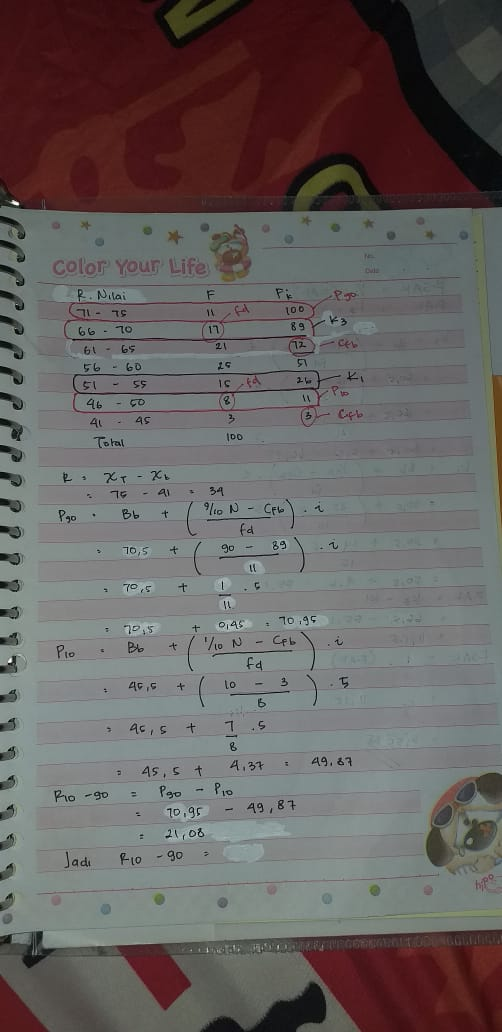 No.
Date
Color Your Life
R. Nilai F Fk
71 - 75 11 fd 100 P90
66 - 70 17 89 K3
61 - 65 21 72 Cfb
56 - 60 25 51
51 - 55 15 fd 26 K1
46 - 50 8 11 P10
41 - 45 3 3 Cfb
Total 100
R = XT - Xb
= 75 - 41 = 34
P90 = Bb + (9/10 N - Cfb / fd) . i
= 70,5 + (90 - 89 / 11) . i
= 70,5 + 1/11 . 5
= 70,5 + 0,45 = 70,95
P10 = Bb + (1/10 N - Cfb / fd) . i
= 45,5 + (10 - 3 / 8) . 5
= 45,5 + 7/8 . 5
= 45,5 + 4,37 = 49,87
R10 - 90 = P90 - P10
= 70,95 - 49,87
= 21,08
Jadi R10 - 90 =